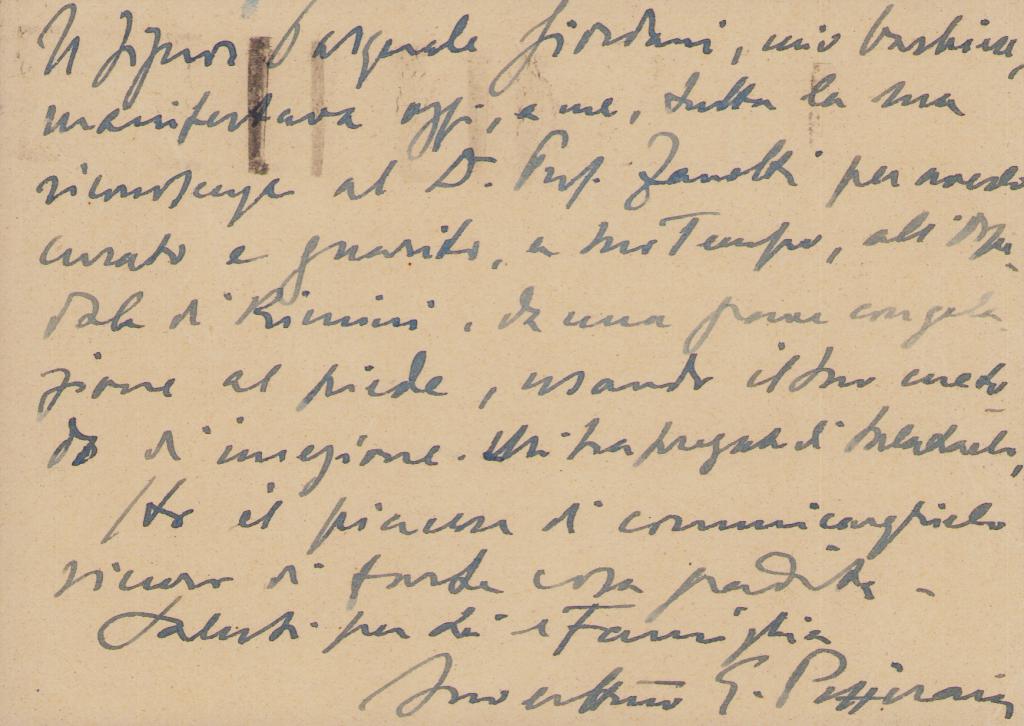 Il Signor Pasquale Giordani, mio barbiere,
manifestava oggi, a me, tutta la sua
riconoscenza al D. Prof. Zanotti per averlo
curato e guarito, a suo Tempo, all'Ospe-
dale di Rimini, da una grave congela
zione al piede, usando il suo meto-
do di iniezione. Mi ha pregato di salutarlo,
Ho il piacere di comunicarglielo
sicuro di farle cosa gradita -
Saluti per Lei e Famiglia
Suo G.